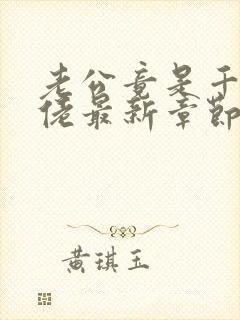 老公竟是千
佬最新章節
黄琪玉